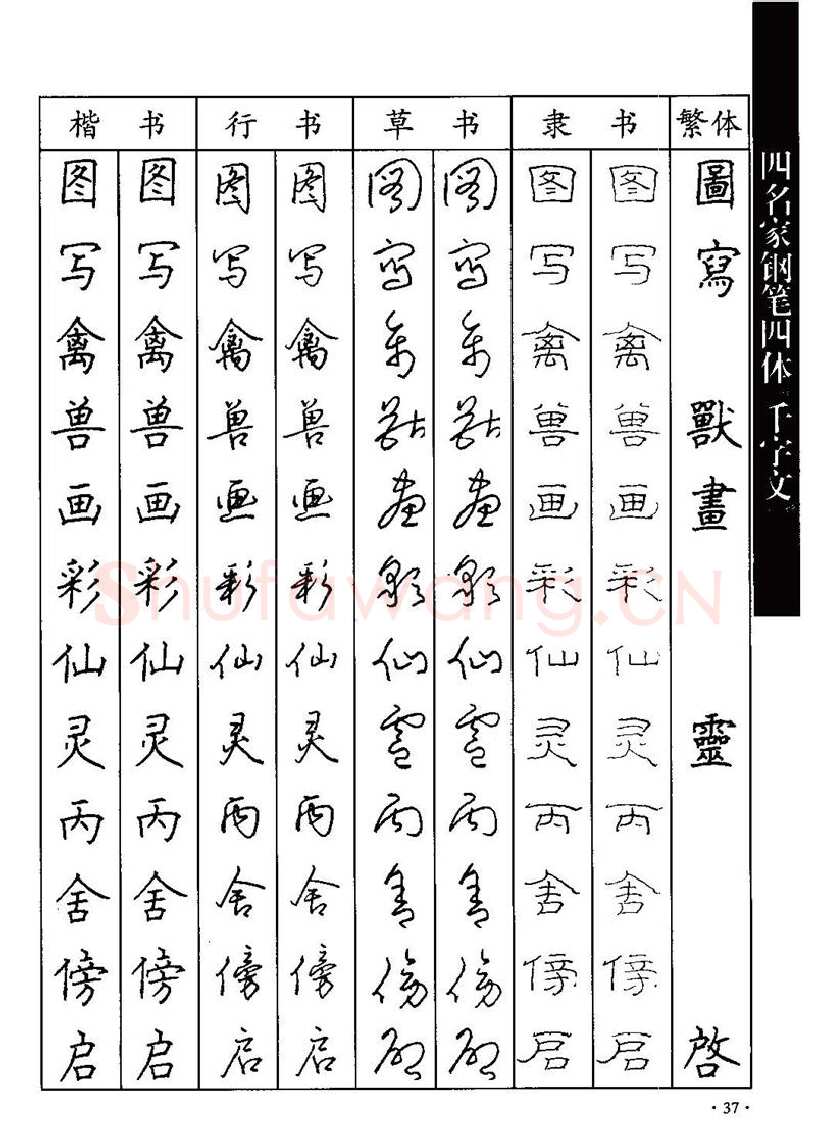 楷书 行书 草书 隶书 繁体
图 图 图 图 图 图 图 图 圖
写 写 写 写 写 写 写 写 寫
禽 禽 禽 禽 禽 禽 禽 禽
兽 兽 兽 兽 獸 獸 兽 兽 獸
画 画 画 画 畫 畫 画 画 畫
彩 彩 彩 彩 彩 彩 彩 彩
仙 仙 仙 仙 仙 仙 仙 仙
灵 灵 灵 灵 靈 靈 灵 灵 靈
丙 丙 丙 丙 丙 丙 丙 丙
舍 舍 舍 舍 舍 舍 舍 舍
傍 傍 傍 傍 傍 傍 傍 傍
启 启 启 启 启 启 启 启 啓
四名家钢笔四体千字文
Shufawang.CN
·37·